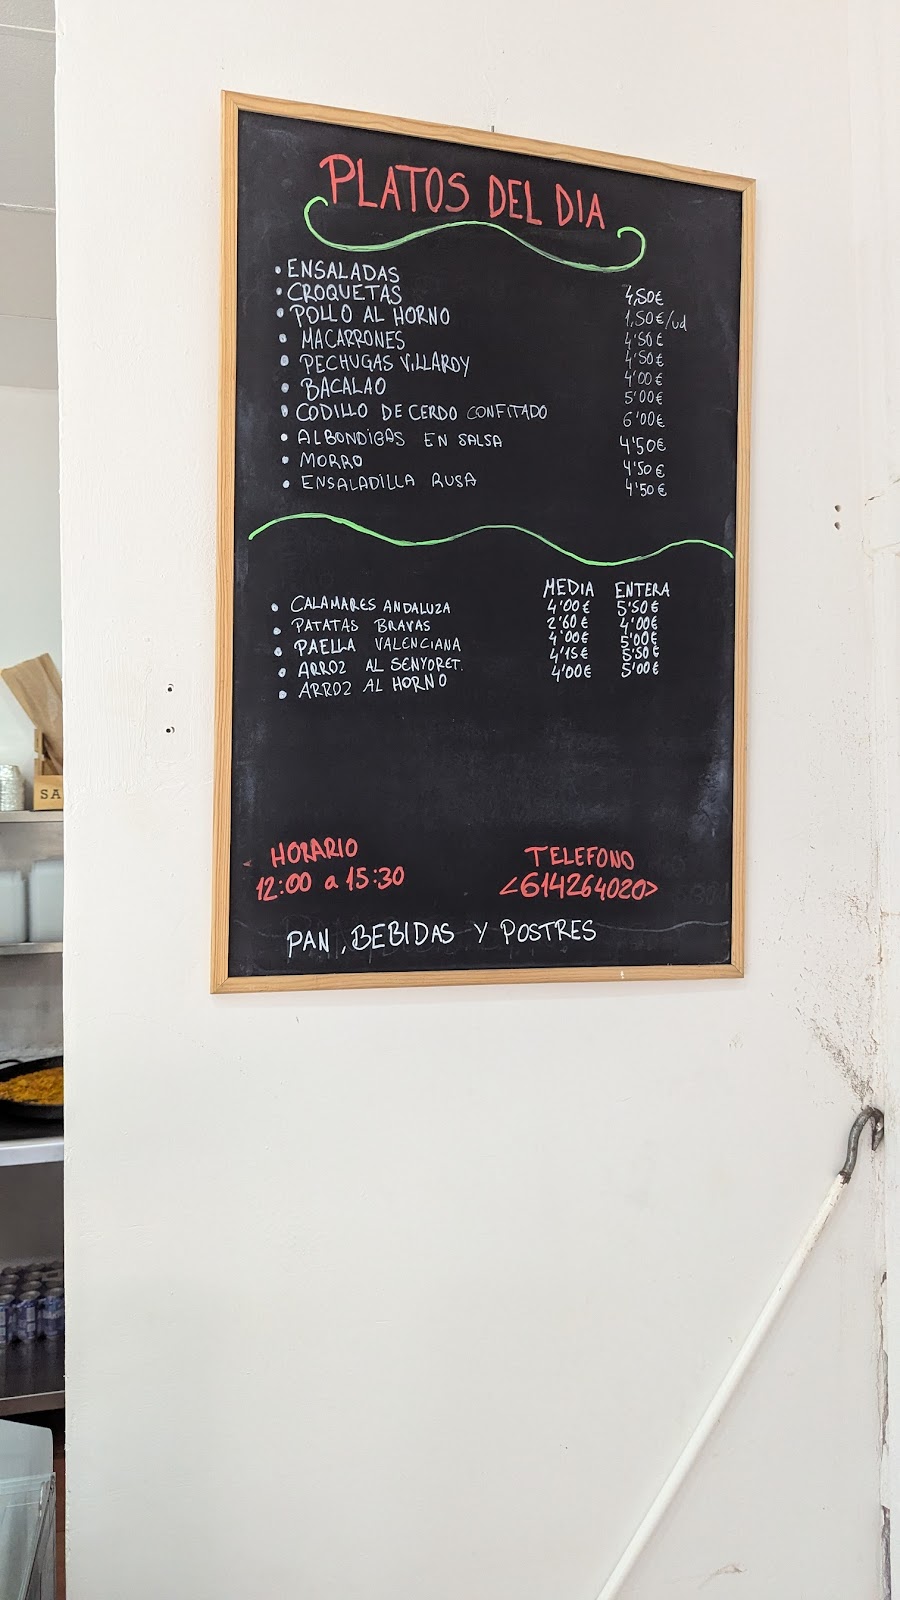 PLATOS DEL DIA
• ENSALADAS 4,50€
• CROQUETAS 1,50€/ud
• POLLO AL HORNO 4'50€
• MACARRONES 4'50€
• PECHUGAS VILLAROY 4'00€
• BACALAO 5'00€
• CODILLO DE CERDO CONFITADO 6'00€
• ALBONDIGAS EN SALSA 4'50€
• MORRO 4'50€
• ENSALADILLA RUSA 4'50€
MEDIA ENTERA
• CALAMARES ANDALUZA 4'00€ 5'50€
• PATATAS BRAVAS 2'60€ 4'00€
• PAELLA VALENCIANA 4'00€ 5'00€
• ARROZ AL SENYORET. 4'15€ 5'50€
• ARROZ AL HORNO 4'00€ 5'00€
HORARIO TELEFONO
12:00 a 15:30 <614264020>
PAN, BEBIDAS Y POSTRES
SA